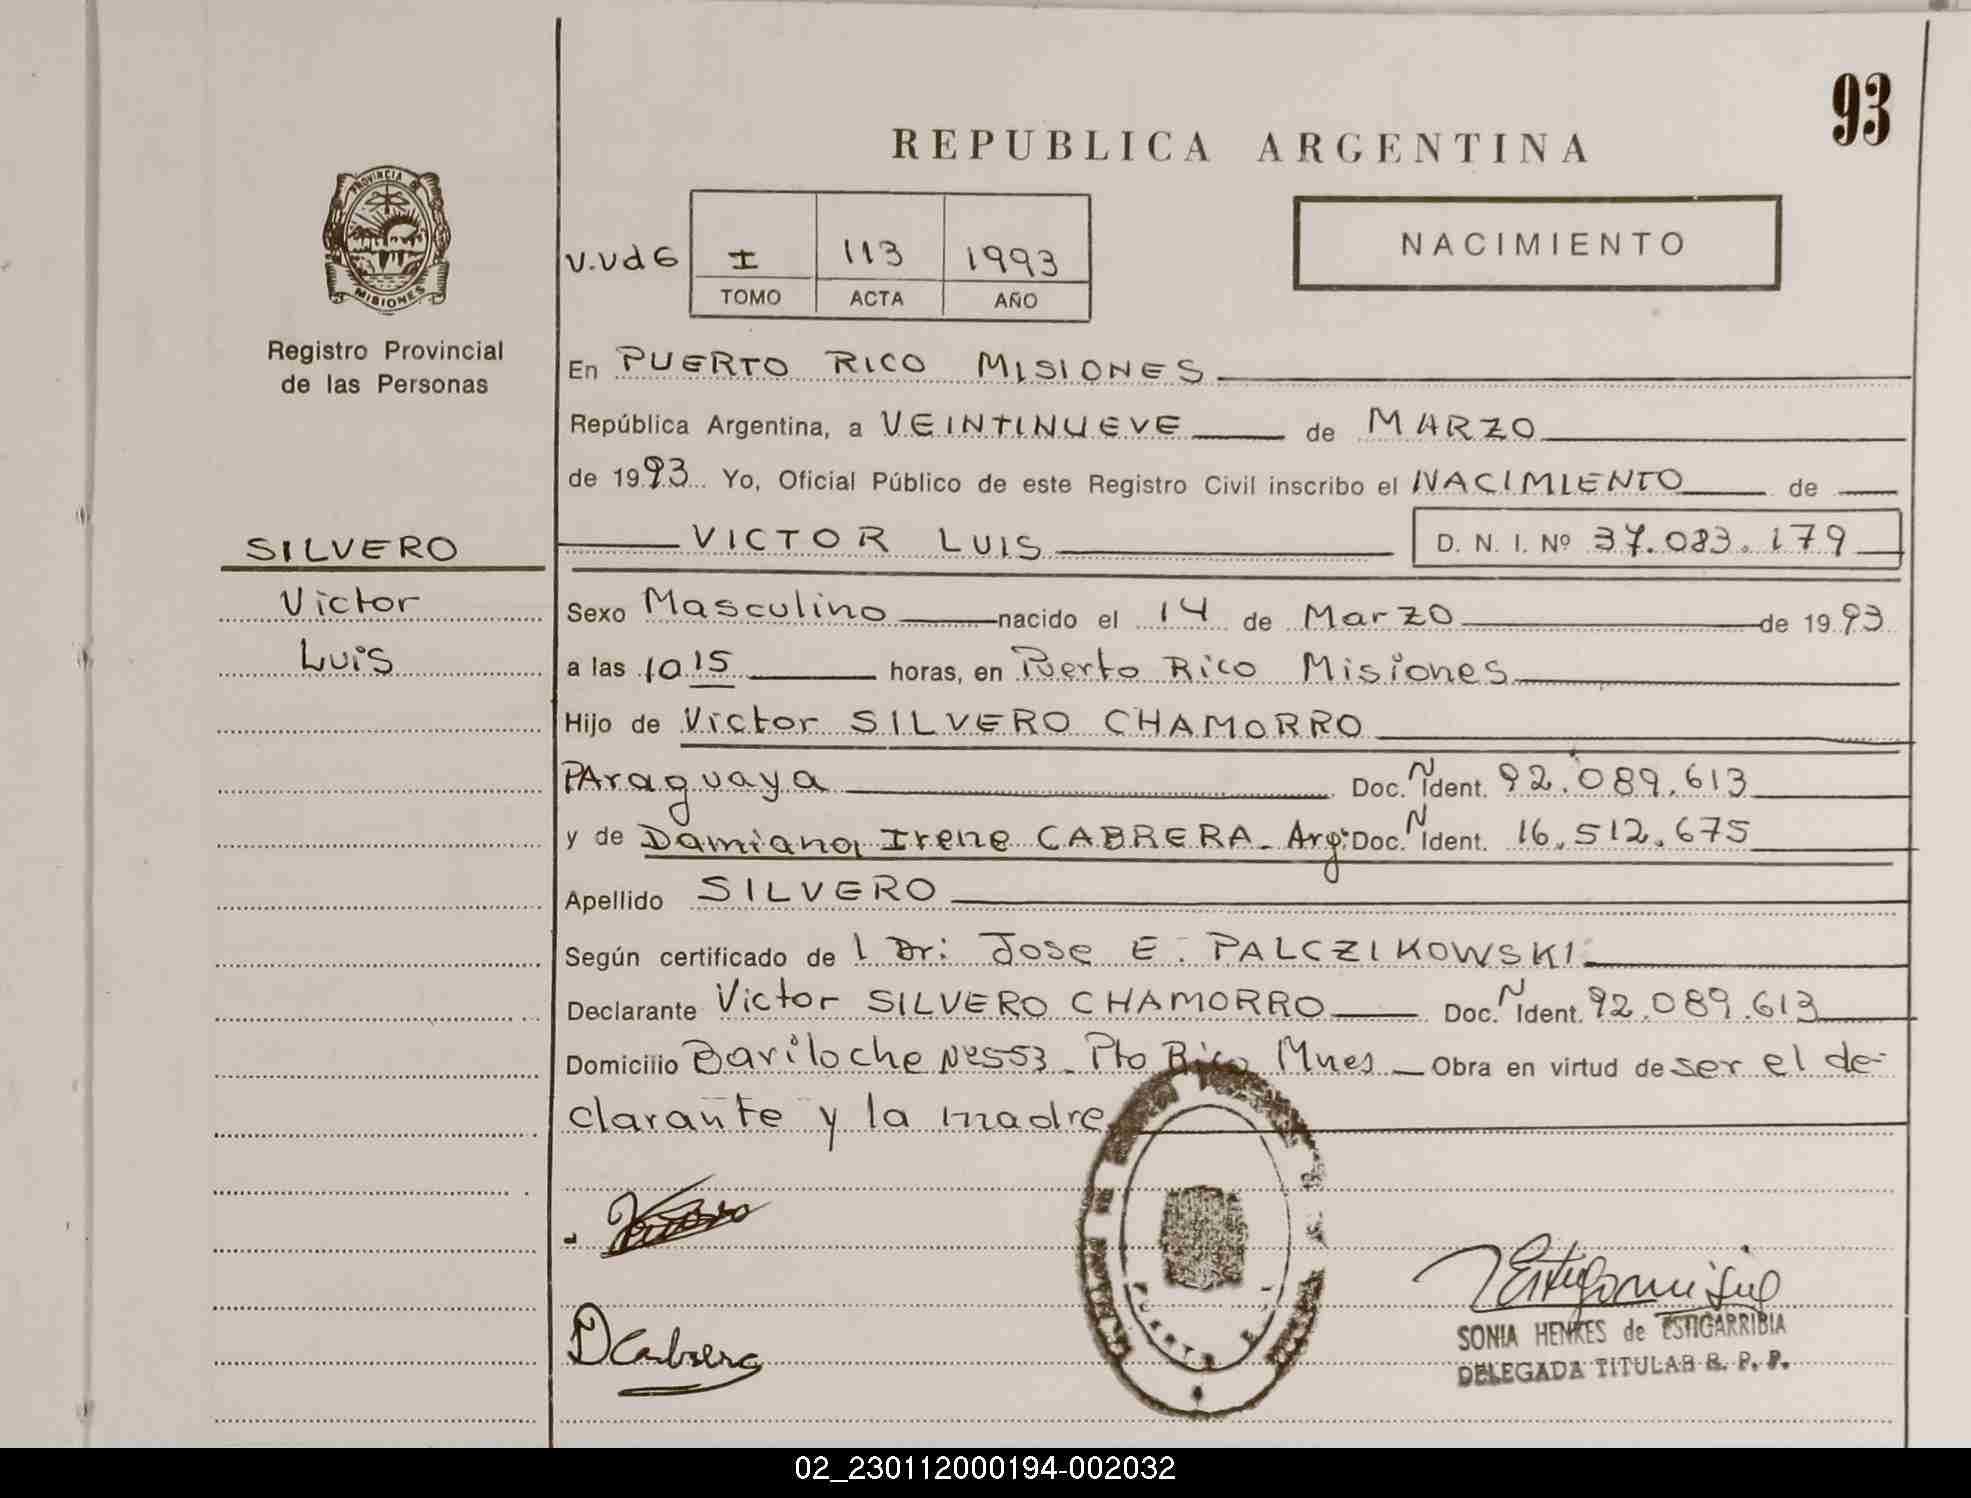 93
REPUBLICA ARGENTINA
PROVINCIA DE
MISIONES
Registro Provincial
de las Personas
V.Vd6 I 113 1993
TOMO ACTA AÑO
NACIMIENTO
En PUERTO RICO MISIONES
República Argentina, a VEINTINUEVE de MARZO
de 1993 Yo, Oficial Público de este Registro Civil inscribo el NACIMIENTO de
SILVERO
Victor
Luis
VICTOR LUIS D. N. I. Nº 37.083.179
Sexo Masculino nacido el 14 de Marzo de 1993
a las 10 15 horas, en Puerto Rico Misiones
Hijo de Victor SILVERO CHAMORRO
PAraguaya Doc. N Ident. 92.089.613
y de Damiana Irene CABRERA - Arg. Doc. N Ident. 16.512.675
Apellido SILVERO
Según certificado de l Dr: Jose E. PALCZIKOWSKI
Declarante Victor SILVERO CHAMORRO Doc. N Ident. 92.089.613
Domicilio Bariloche Nº553 - Pto Rico Mnes Obra en virtud de ser el de-
clarante y la madre
DCabrera
SONIA HENKES de ESTIGARRIBIA
DELEGADA TITULAR R. P. P.
02_230112000194-002032